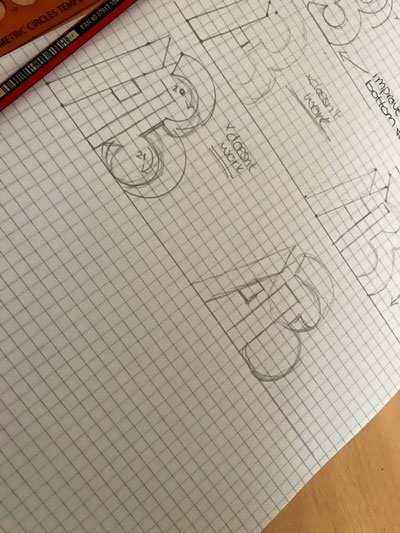 METRIC CIRCLES TEMPL
AB
20
21
x doesn't
work
AB
x doesn't
work
improve
bottom
AB
AB